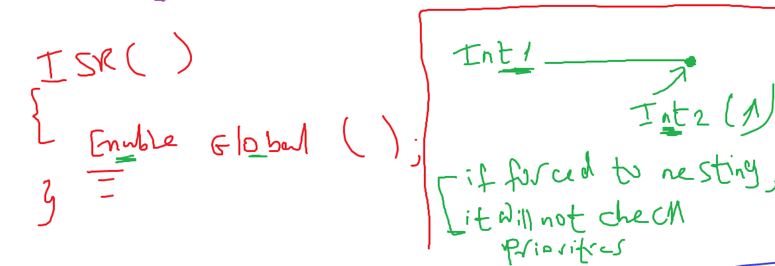 ISR( )
{
Enable Global ( );
}
Int1
Int2 (↑)
if forced to nesting,
it will not check
priorities